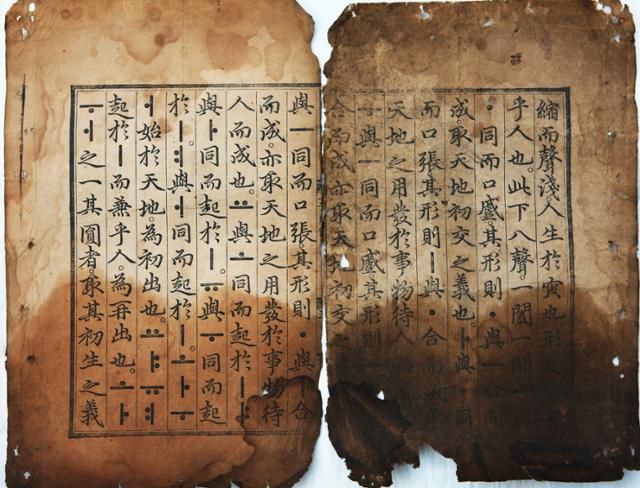 縮而聲淺。人生於寅也。形之
乎人也。此下八聲。一闔一闢
ㆍ同而口蹙。其形則ㆍ與ㅡ合而
成。取天地初交之義也。ㅏ與ㆍ同
而口張。其形則ㅣ與ㆍ合而成
天地之用發於事物待人而
ㅜ與ㅡ同而口蹙其形則ㅡ
合而成。亦取天地初交之
與ㅡ同而口張。其形則ㆍ與ㅣ合
而成。亦取天地之用發於事物待
人而成也。ㅛ與ㅗ同而起於ㅣ。ㅑ
與ㅏ同而起於ㅣ。ㅠ與ㅜ同而起
於ㅣ。ㅕ與ㅓ同而起於ㅣ。ㅗㅏㅜ
ㅓ始於天地。為初出也。ㅛㅑㅠㅕ
起於ㅣ而兼乎人。為再出也。ㅗㅏ
ㅜㅓ之一其圓者。取其初生之義